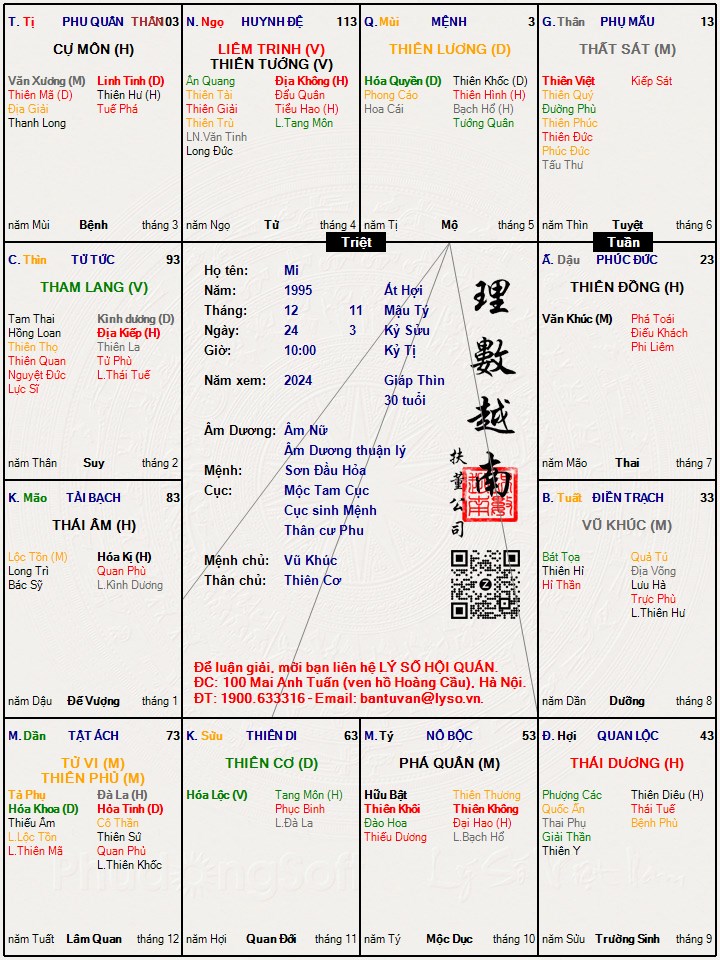 T. Tị PHU QUÂN THÂN 103
CỰ MÔN (H)
Văn Xương (M) Linh Tinh (D)
Thiên Mã (D) Thiên Hư (H)
Địa Giải Tuế Phá
Thanh Long
năm Mùi Bệnh tháng 3
N. Ngọ HUYNH ĐỆ 113
LIÊM TRINH (V)
THIÊN TƯỚNG (V)
Ân Quang Địa Không (H)
Thiên Tài Đẩu Quân
Thiên Giải Tiểu Hao (H)
Thiên Trù L.Tang Môn
LN.Văn Tinh
Long Đức
năm Ngọ Tử tháng 4
Q. Mùi MỆNH 3
THIÊN LƯƠNG (D)
Hóa Quyền (D) Thiên Khốc (D)
Phong Cáo Thiên Hình (H)
Hoa Cái Bạch Hổ (H)
Tướng Quân
năm Tị Mộ tháng 5
G. Thân PHỤ MẪU 13
THẤT SÁT (M)
Thiên Việt Kiếp Sát
Thiên Quý
Đường Phù
Thiên Phúc
Thiên Đức
Phúc Đức
Tấu Thư
năm Thìn Tuyệt tháng 6
Triệt
Tuần
C. Thìn TỬ TỨC 93
THAM LANG (V)
Tam Thai Kình dương (D)
Hồng Loan Địa Kiếp (H)
Thiên Thọ Thiên La
Thiên Quan Tử Phù
Nguyệt Đức L.Thái Tuế
Lực Sĩ
năm Thân Suy tháng 2
Họ tên: Mi
Năm: 1995 Ất Hợi
Tháng: 12 11 Mậu Tý
Ngày: 24 3 Kỷ Sửu
Giờ: 10:00 Kỷ Tị
Năm xem: 2024 Giáp Thìn
30 tuổi
Âm Dương: Âm Nữ
Âm Dương thuận lý
Mệnh: Sơn Đầu Hỏa
Cục: Mộc Tam Cục
Cục sinh Mệnh
Thân cư Phu
Mệnh chủ: Vũ Khúc
Thân chủ: Thiên Cơ
理數越南
扶董公司
Z
Để luận giải, mời bạn liên hệ LÝ SỐ HỘI QUÁN.
ĐC: 100 Mai Anh Tuấn (ven hồ Hoàng Cầu), Hà Nội.
ĐT: 1900.633316 - Email: bantuvan@lyso.vn.
Ấ. Dậu PHÚC ĐỨC 23
THIÊN ĐỒNG (H)
Văn Khúc (M) Phá Toái
Điếu Khách
Phi Liêm
năm Mão Thai tháng 7
K. Mão TÀI BẠCH 83
THÁI ÂM (H)
Lộc Tồn (M) Hóa Kị (H)
Long Trì Quan Phù
Bác Sỹ L.Kình Dương
năm Dậu Đế Vượng tháng 1
B. Tuất ĐIỀN TRẠCH 33
VŨ KHÚC (M)
Bát Tọa Quả Tú
Thiên Hỉ Địa Võng
Hỉ Thần Lưu Hà
Trực Phù
L.Thiên Hư
năm Dần Dưỡng tháng 8
M. Dần TẬT ÁCH 73
TỬ VI (M)
THIÊN PHỦ (M)
Tả Phụ Đà La (H)
Hóa Khoa (D) Hỏa Tinh (D)
Thiếu Âm Cô Thần
L.Lộc Tồn Thiên Sứ
L.Thiên Mã Quan Phủ
L.Thiên Khốc
năm Tuất Lâm Quan tháng 12
K. Sửu THIÊN DI 63
THIÊN CƠ (D)
Hóa Lộc (V) Tang Môn (H)
Phục Binh
L.Đà La
năm Hợi Quan Đới tháng 11
M. Tý NÔ BỘC 53
PHÁ QUÂN (M)
Hữu Bật Thiên Thương
Thiên Khôi Thiên Không
Đào Hoa Đại Hao (H)
Thiếu Dương L.Bạch Hổ
năm Tý Mộc Dục tháng 10
Đ. Hợi QUAN LỘC 43
THÁI DƯƠNG (H)
Phượng Các Thiên Diêu (H)
Quốc Ấn Thái Tuế
Thai Phụ Bệnh Phù
Giải Thần
Thiên Y
năm Sửu Trường Sinh tháng 9